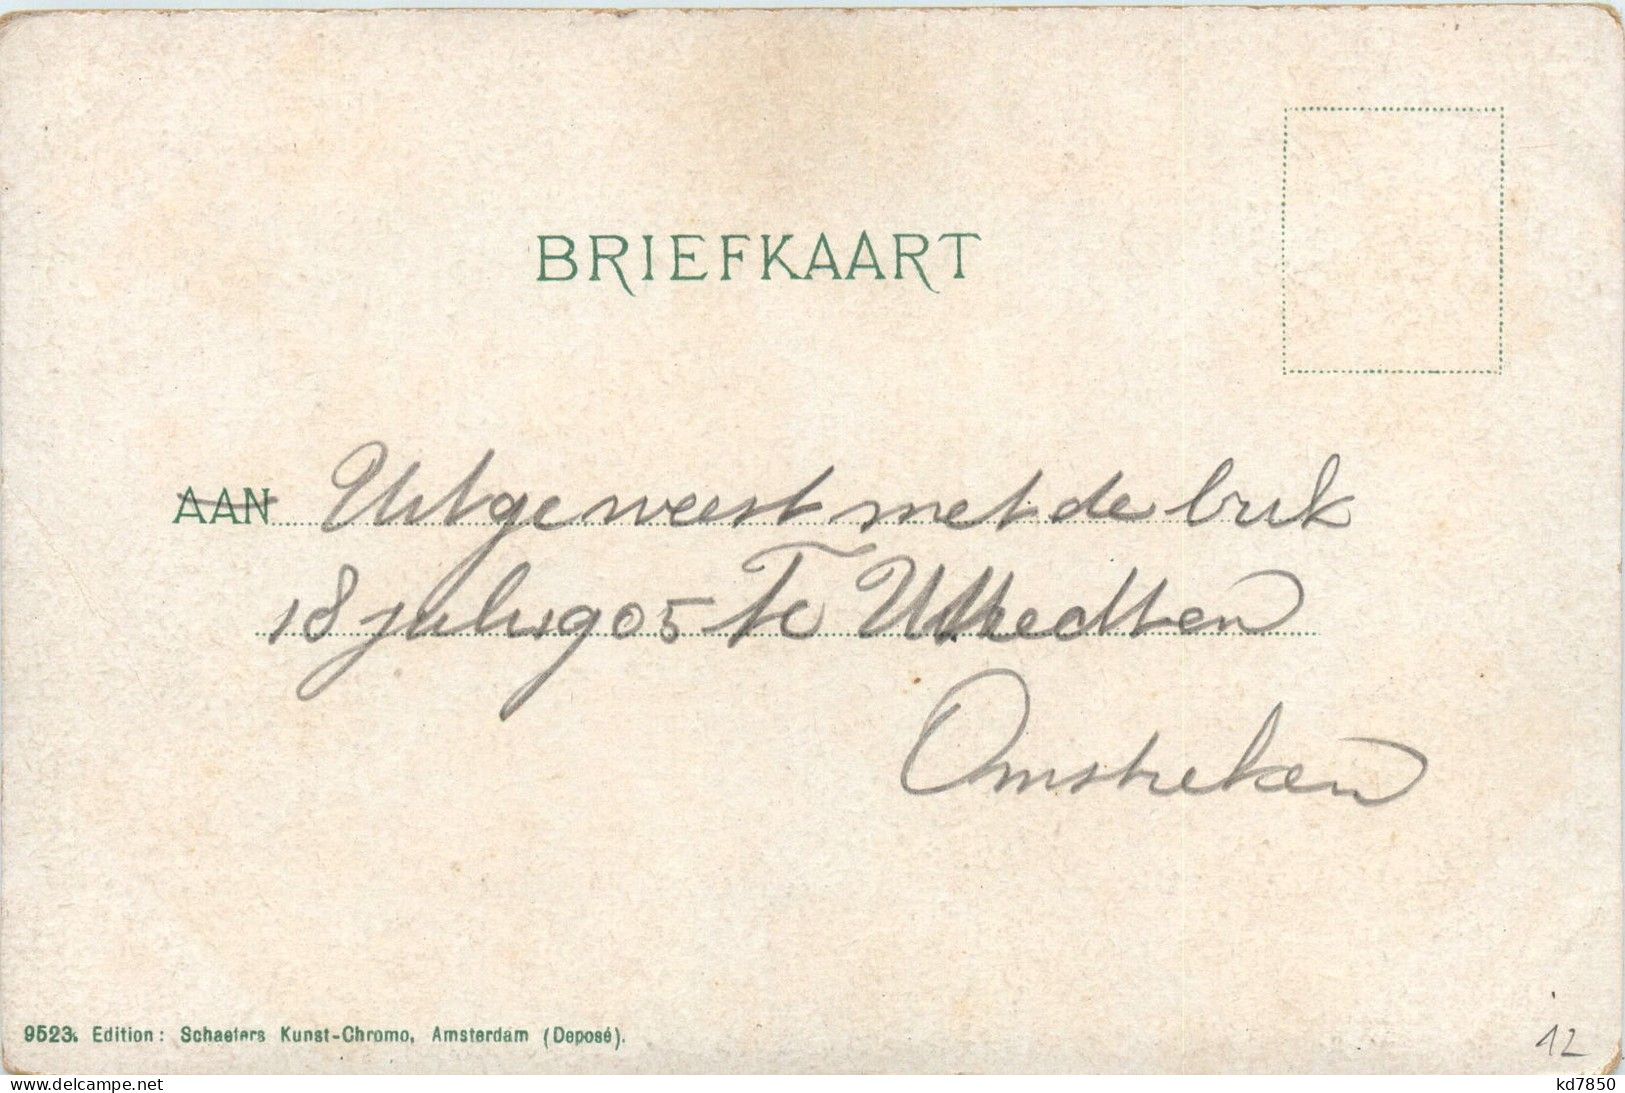 BRIEFKAART
AAN Uitgeweest met de brik
18 july 1905 Te Uthecthen
Omstreken
9523. Edition: Schaefers Kunst-Chromo, Amsterdam (Deposé).
12
delcampe.net
kd7850